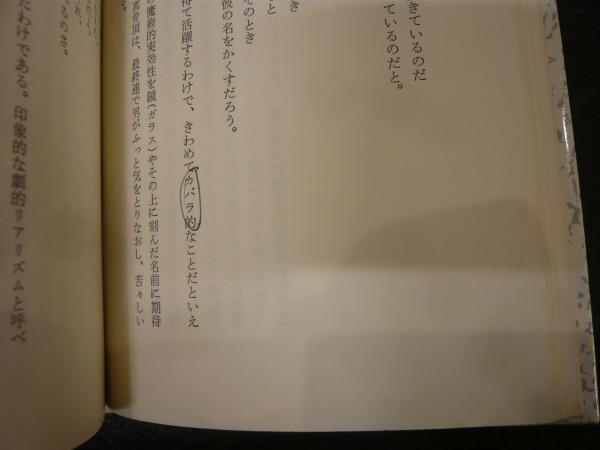 きているのだ
ているのだと。
き
と
そのとき
彼の名をかくすだろう。
待て活躍するわけで、きわめてカバラ的なことだといえ
の魔術的実効性を鏡(ガラス)やその上に刻んだ名前に期待
真骨頂は、最終連で男がふっと気をとりなおし、苦々しい
る。
たわけである。印象的な劇的リアリズムと呼べ